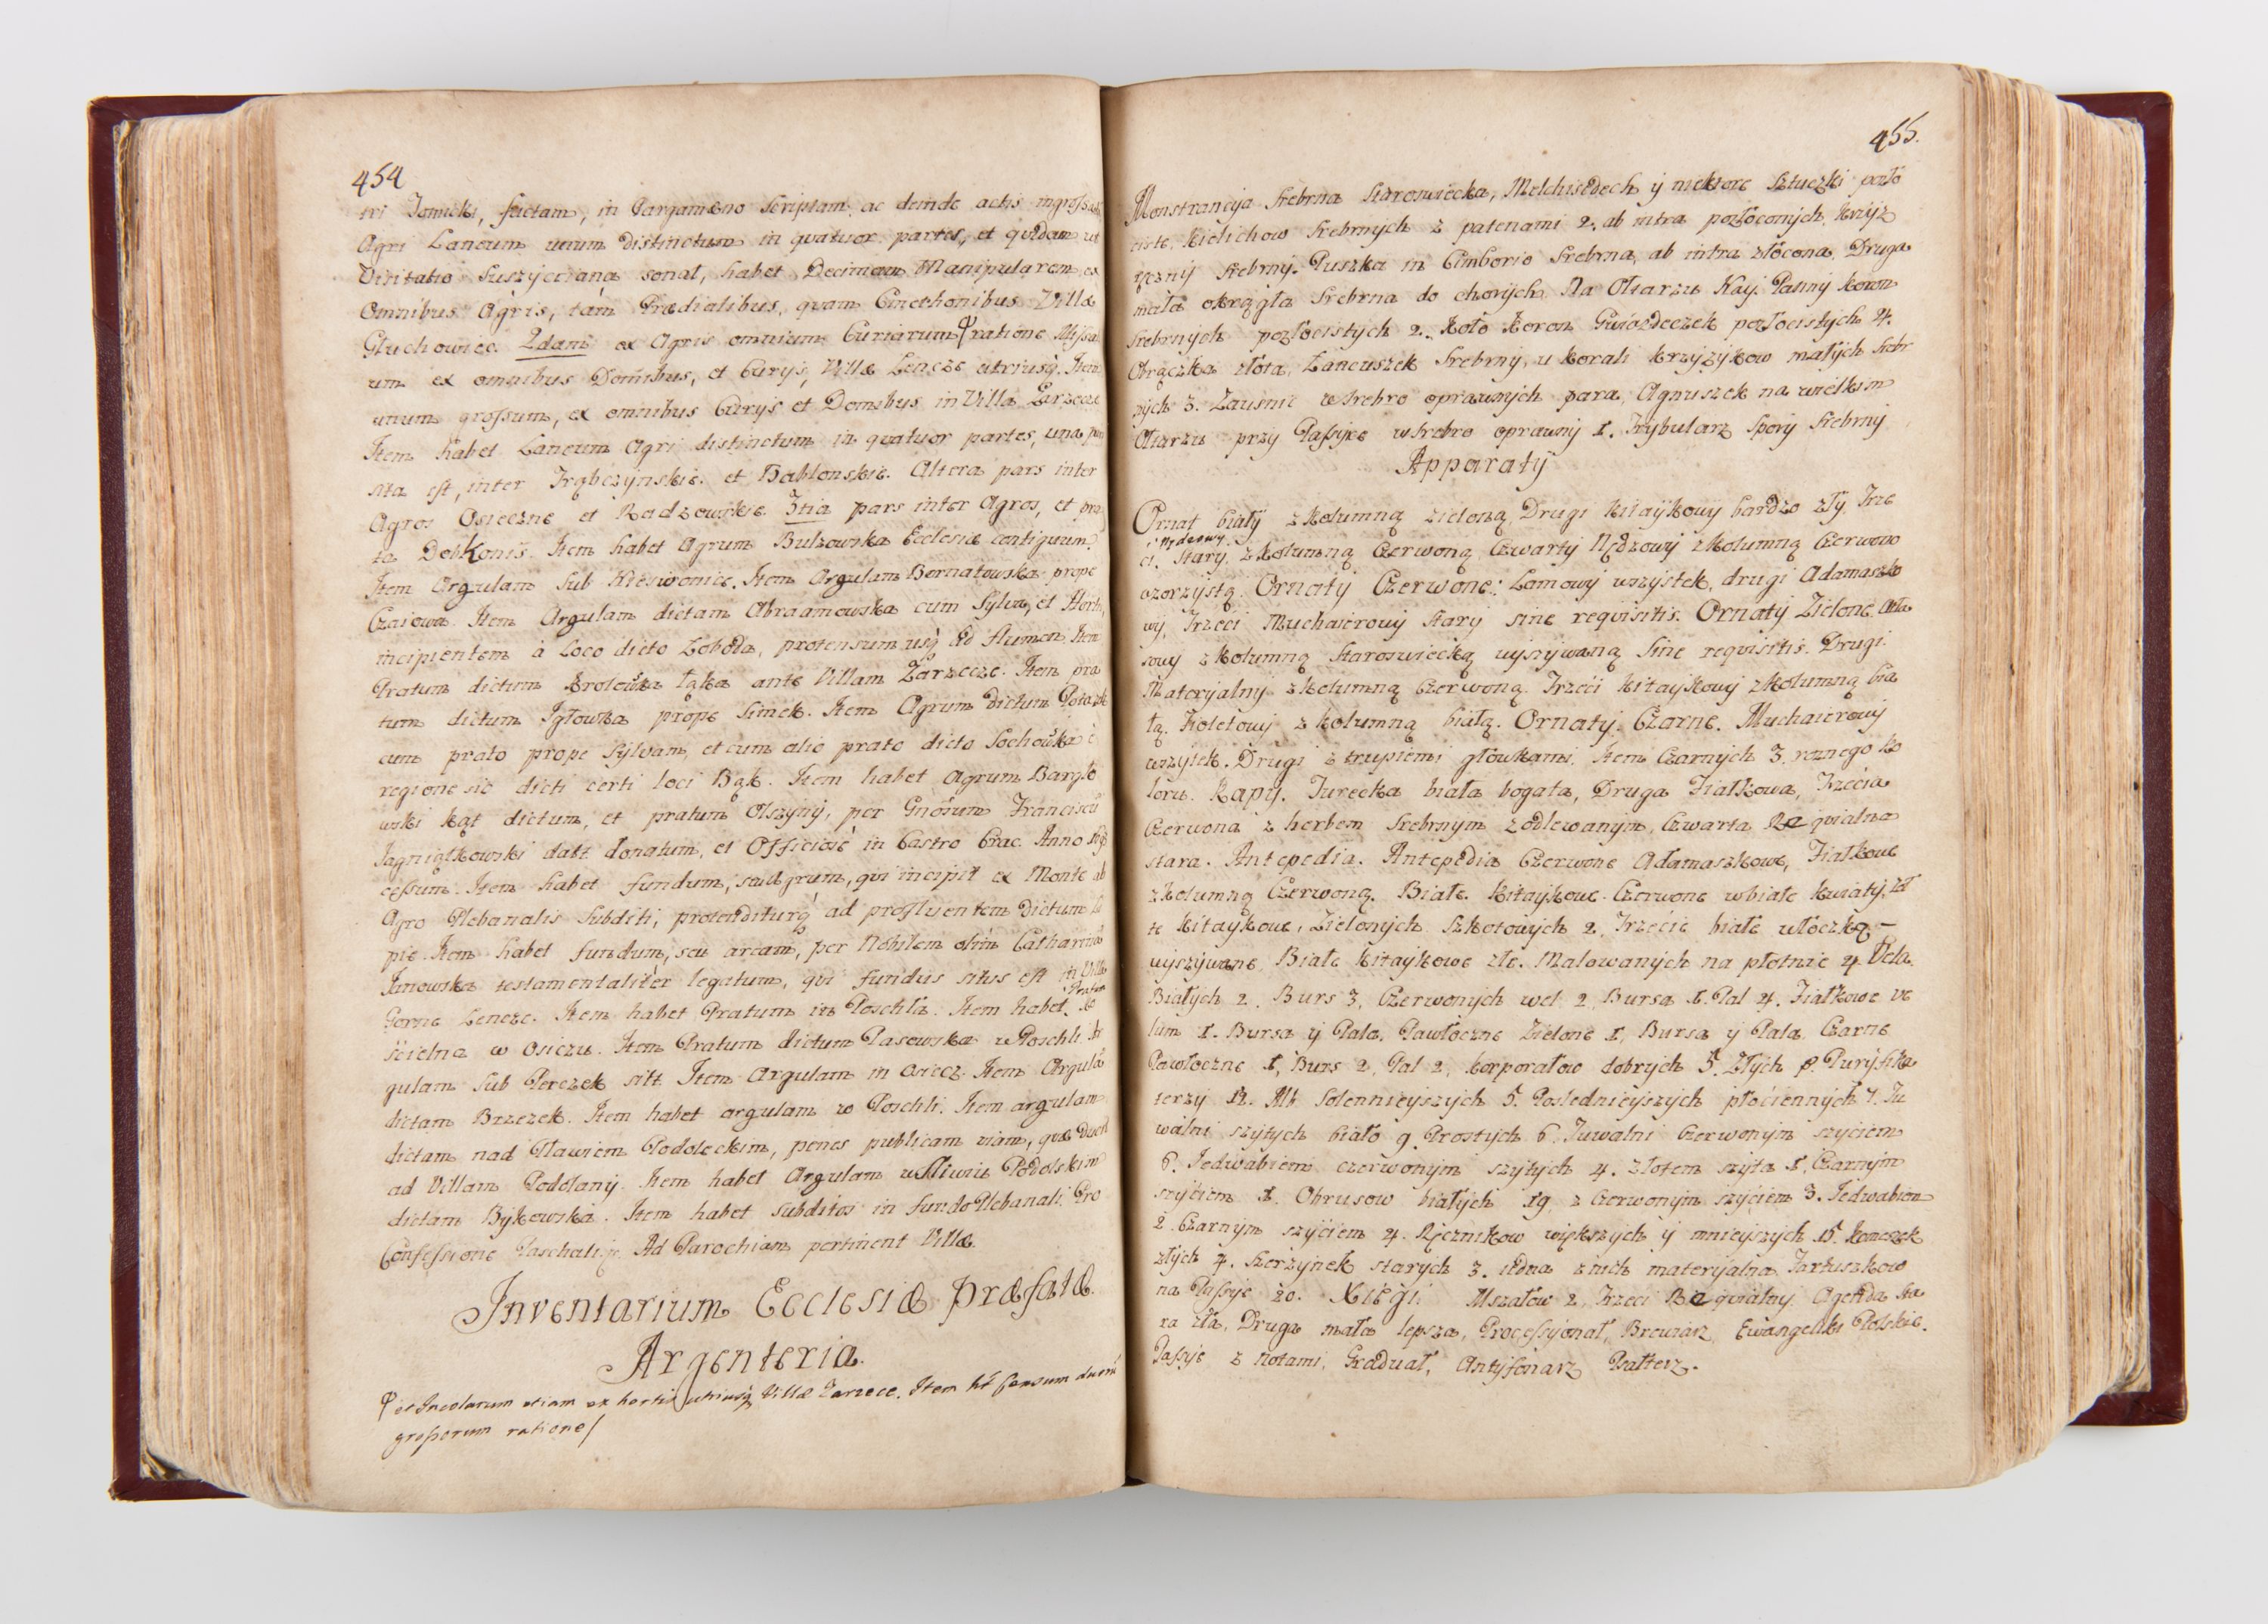 454
tri Tomicki, factam, in Pargameno Scriptam, ac deinde actis ingrossat
Agri Laneum unum distinctum in quatuor partes, et quidem ut
Visitatio Suszyciana sonat, habet Decimam Manipularem ex
Omnibus Agris, tam Prædialibus, quam Cmethonibus Villæ
Głuchowiec. 2dam ex Agris omnium Curiarum ratione Missa
um ex omnibus Domibus, et Curys, Villæ Lencze utriusq. Item
unum grossum, ex omnibus Curys et Domibus in Villa Zarzecze
Item habet Laneum Agri distinctum in quatuor partes, una pars
sita est, inter Trąbczynskie et Bablonskie. Altera pars inter
Agros Osieczne et Radzowskie 3tia pars inter Agros, et pra
ta Dobkonis. Item habet Agrum Bulzowska Ecclesiæ contiguum.
Item Argulam Sub Item Argulam Bernatowska prope
Czaiowa. Item Argulam dictam Abraamowska cum Sylva, et Hortis,
incipientem à Loco dicto Zoboda, protensum usq Ad flumen Item
Pratum dictum Krolewska łąka ante Villam Zarzecze. Item pra
tum dictum Igłowka prope Simek. Item Agrum dictum
cum prato prope Sylvam, et cum alio prato dicto Sochowka è
regione sic dicti certi loci Bąk. Item habet Agrum Bargło
wski kąt dictum, et pratum Olszyny, per Gnosum Franciscu
Jagniątkowski datt donatum, et Officiose in Castro Crac. Anno
cessum. Item habet fundum, seu agrum, qui incipit ex Monte ab
Agro Plebanalis Subditi, protenditurq ad profluentem dictum
pie. Item habet fundum, seu aream, per Nobilem olim Catharina
Janowska testamentaliter legatum, qui fundus situs est in Villa
Gorne Lencze. Item habet Pratum in Poschla. Item habet Pratum Ko
scielna w Osiczu. Item Pratum dictum Pasowska w Poschli Ar
gulam Sub Perczek sitt. Item Argulam in Osiecz. Item Argula
dictam Brzezek. Item habet argulam w Poschli. Item argulam
dictam nad Stawiem Podoleckim, penes publicam viam, quæ ducit
ad Villam Podolany. Item habet Argulam w Niwie Podolskim
dictam Bykowska. Item habet subditos in fundo Plebanali. Pro
Confessione Paschali Ad Parochiam pertinent Villæ.
Inventarium Ecclesiæ Præfatæ.
Argenteria.
et Incolarum etiam ex hortis utriusq Villæ Zarzece. Item ht censum duorum
grossorum ratione/
455.
Monstrancyja Srebrna Staroswiecka, Melchisedech y niektore Sztuczki pozło
ciste, Kielichow Srebrnych z patenami 2. ab intra pozłoconych. Krzyz
ręczny Srebrny. Puszka in Cimborio Srebrna, ab intra złocona, Druga
mała okrągła Srebrna do chorych. Na Ołtarzu Nay. Panny koron
Srebrnych pozłocistych 2. Koło koron Gwiazdeczek pozłocistych 4.
Obrączka złota, Łancuszek Srebrny, u korali krzyzykow małych Srebr
nych 3. Zausnic w Srebro oprawnych para, Agnuszek na wielkim
Ołtarzu przy Passyce w Srebro oprawny 1. Trybularz Spory Srebrny
Apparaty
Ornat biały z kolumną zieloną, Drugi kitaykowy bardzo zły. Trze
i Nędzowy
ci. Stary, z kolumną Czerwoną, Czwarty Nędzowy z kolumną Czerwono
wzorzystą. Ornaty Czerwone: Lamowy wszystek, drugi Adamaszko
wy, Trzeci Muchaierowy stary sine requisitis. Ornaty Zielone. Atła
sowy z kolumną Staroswiecką wyszywaną Sine requisitis. Drugi
Materyalny z kolumną Czerwoną. Trzeci kitaykowy z kolumną bia
łą. Fioletowy z kolumną białą. Ornaty Czarne. Muchaierowy
wszystek. Drugi z trupiemi głowkami. Item Czarnych 3. roznego ko
loru. Kapy. Turecka biała bogata, Druga Fiałkowa, Trzecia
Czerwona z herbem Srebrnym z odlewanym, Czwarta Requialna
stara. Antepedia. Antepedia Czerwone Adamaszkowe, Fiałkowe
z kolumną Czerwoną. Białe kitaykowe. Czerwone w białe kwiaty, Zół
te kitaykowe, Zielonych Szkotowych 2. Trzecie białe włoczką –
wyszywane, Białe kitaykowe złe. Malowanych na płotnie 4. Vela.
Białych 2. Burs 3, Czerwonych wel. 2, Bursa 1. Pal 4. Fiałkowe ve
lum 1. Bursa y Pala, Pawłoczne Zielone 1, Bursa y Pala, Czarne
Pawłoczne 1, Burs 2, Pal 2, Korporałow dobrych 5. Złych 8. Puryfika
terzy 12. Alb Solennieyszych 5. Poslednieyszych płociennych 7. Tu
walni szytych biało 9. Prostych 6. Tuwalni Czerwonym szyciem
6. Jedwabiem czerwonym szytych 4. Złotem szyta 1. Czarnym
szyciem 1. Obrusow białych 19 z Czerwonym szyciem 3. Jedwabiem
2. Czarnym szyciem 4. Ręcznikow większych y mnieyszych 15. Komeszek
złych 4. Scerzynek starych 3. iedna z nich materyalna Fartuszkow
na Passyje 20. Xięgi. Mszałow 2, Trzeci Requialny. Agenda sta
ra zła, Druga mała lepsza, Processyonał, Brewiarz, Ewangeliki Polskie.
Passye z Notami, Graduał, Antyfonarz Psałterz.